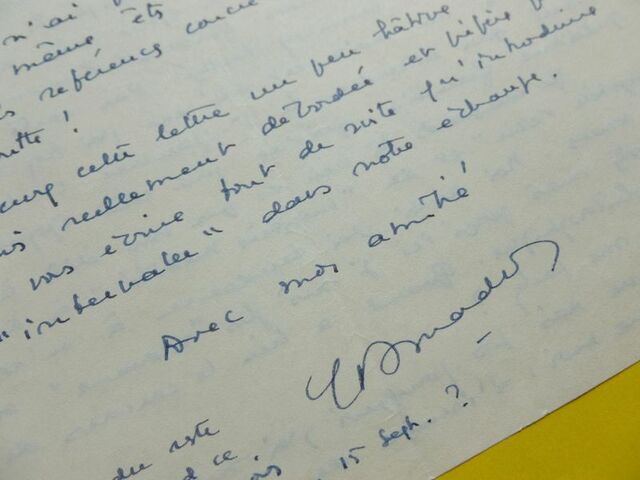 n'ai
même
référence
cette lettre un peu hâtive
réellement débordée et préfère
vous écrire tout de suite qu'introduire
"intervalle" dans notre échange.
Avec mon amitié
du reste
ce.
15 Sept. ?